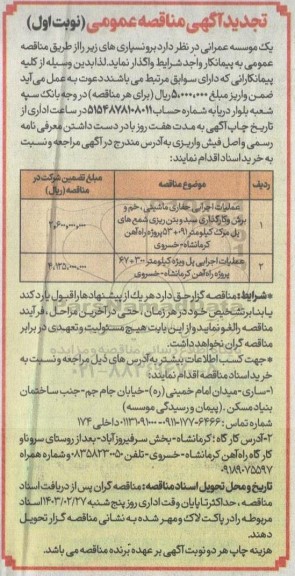 تجدید آگهی مناقصه عمومی (نوبت اول)
یک موسسه عمرانی در نظر دارد برونسپاری های زیر را از طریق مناقصه
عمومی به پیمانکار واجد شرایط واگذار نماید. لذا بدین وسیله از کلیه
پیمانکارانی که دارای سوابق مرتبط می باشند دعوت به عمل می آید
ضمن واریز مبلغ ۵،۰۰۰،۰۰۰ ریال (برای هر مناقصه) در وجه بانک سپه
شعبه بلوار دریا به شماره حساب ۵۱۵۴۸۷۸۱۰۸۰۱۱ در ساعت اداری از
تاریخ چاپ آگهی به مدت هفت روز با در دست داشتن معرفی نامه
رسمی و اصل فیش واریزی به آدرس مندرج در آگهی مراجعه و نسبت
به خرید اسناد اقدام نمایند:
ردیف موضوع مناقصه مبلغ تضمین شرکت در مناقصه (ریال)
۱ عملیات اجرایی حفاری ماشینی، خم و
برش و کارگذاری سبد و بتن ریزی شمع های
پل مرک کیلومتر ۰۹۱+۵۳ پروژه راه آهن
کرمانشاه-خسروی
۲،۶۰۰،۰۰۰،۰۰۰
۲ عملیات اجرایی پل ویژه کیلومتر ۳۰۰+۶۷
پروژه راه آهن کرمانشاه-خسروی
۴،۱۳۵،۰۰۰،۰۰۰
*شرایط: مناقصه گزار حق دارد هر یک از پیشنهادها را قبول یا رد کند
یا بنابر تشخیص خود در هر زمان، حتی در آخرین مراحل، فرآیند
مناقصه را لغو نماید و از این بابت هیچ مسئولیت و تعهدی در برابر
مناقصه گران نخواهد داشت.
*جهت کسب اطلاعات بیشتر به آدرس های ذیل مراجعه و نسبت به
خرید اسناد مناقصه اقدام نمایند:
۱-ساری-میدان امام خمینی (ره)-خیابان جام جم-جنب ساختمان
بنیاد مسکن. (پیمان و رسیدگی موسسه)
داخلی ۱۷۴
۲-آدرس کارگاه: کرمانشاه-بخش سرفیروزآباد-بعد از روستای سرونا و
کارگاه راه آهن کرمانشاه-خسروی-تلفن ۰۸۳۵۸۲۳۰۰۵۰ و شماره همراه
۰۹۱۸۹۰۷۵۵۹۷
تاریخ و محل تحویل اسناد مناقصه: مناقصه گران پس از دریافت اسناد
مناقصه، حداکثر تا پایان وقت اداری روز پنج شنبه ۱۴۰۳/۰۲/۲۷ اسناد
مربوطه را در پاکت لاک و مهر شده به نشانی مناقصه گزار تحویل
دهند.
هزینه چاپ هر دو نوبت آگهی بر عهده برنده مناقصه می باشد.